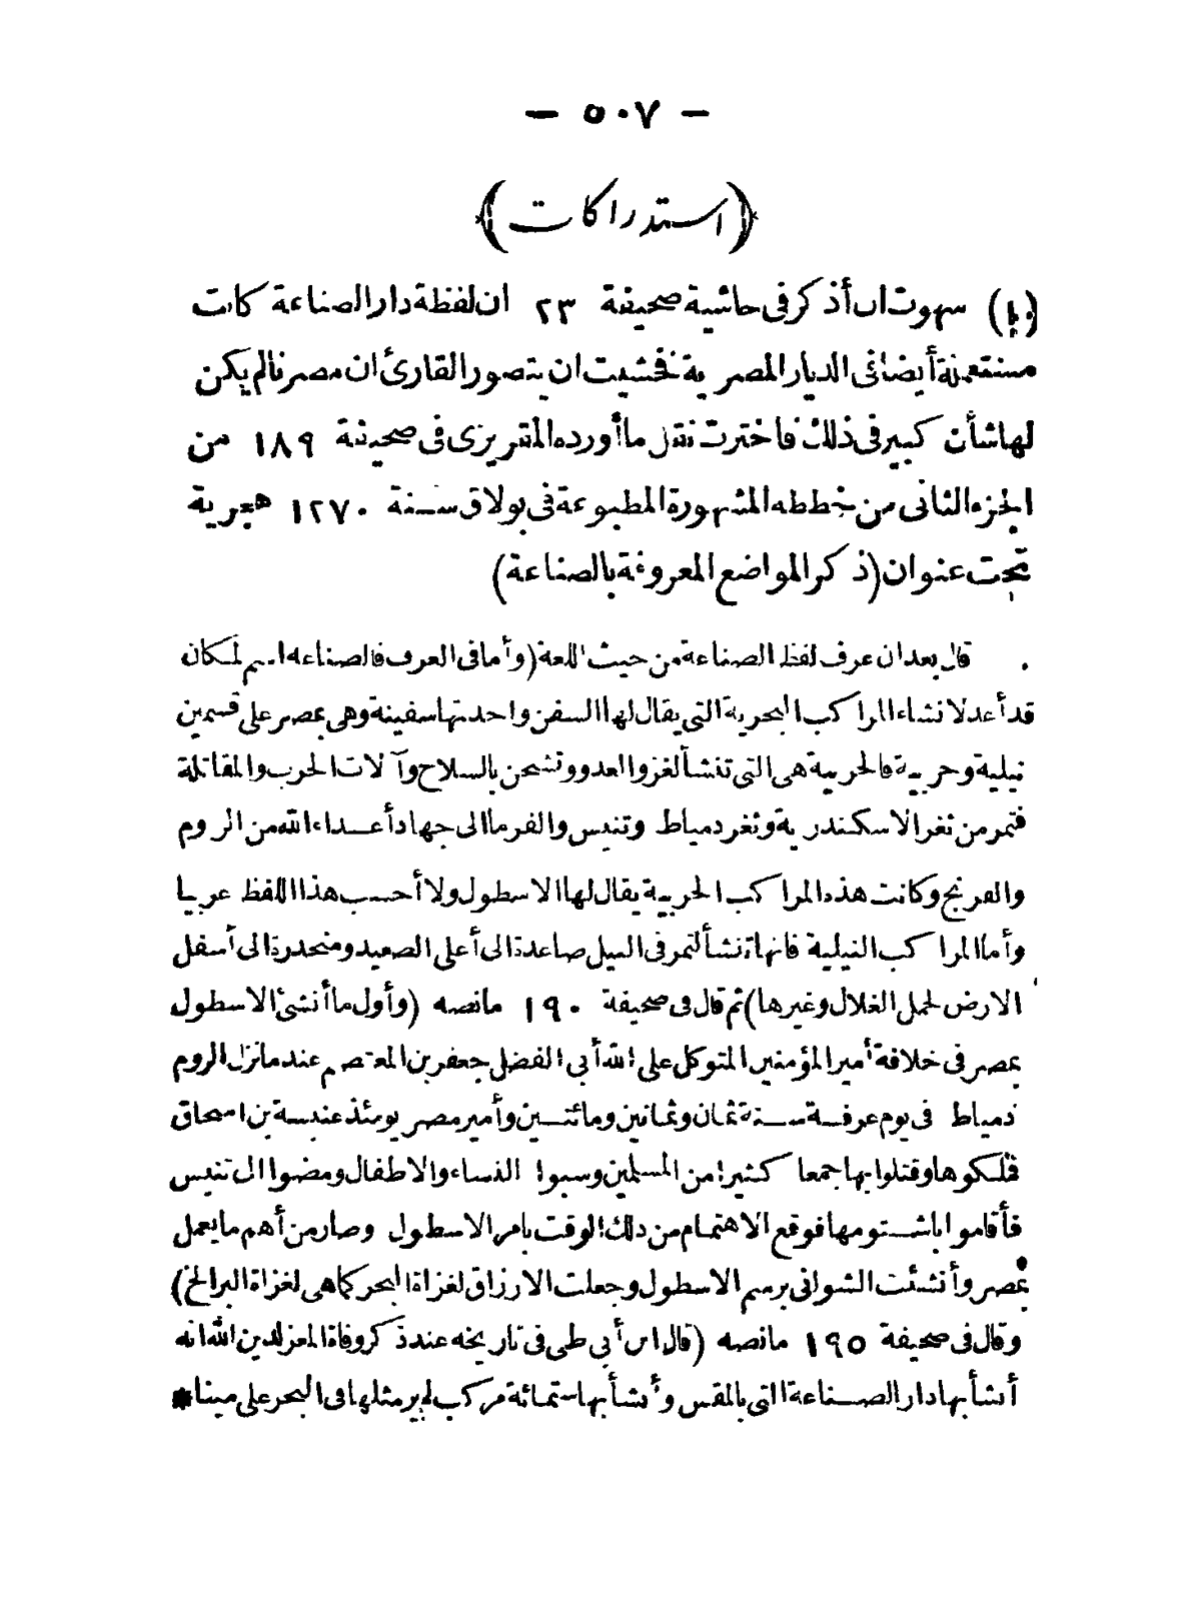 — ٥٠٧ —
﴿استدراكات﴾
سهوت ان أذكر فى حاشية صحيفة ٢٣ ان لفظة دار الصناعة كانت
مستعملة أيضا فى الديار المصرية فخشيت ان يتصور القارئ ان مصر نا لم يكن
لها شأن كبير فى ذلك فاخترت نقل ما أورده المقريزى فى صحيفة ١٨٩ من
الجزء الثانى من خططه المشهورة المطبوعة فى بولاق سنة ١٢٧٠ هجرية
تحت عنوان (ذكر المواضع المعروفة بالصناعة)
قال بعد ان عرف لفظ الصناعة من حيث اللغة (وأما فى العرف فالصناعة اسم لمكان
قد أعد لانشاء المراكب البحرية التى يقال لها السفن واحدتها سفينة وهى بمصر على قسمين
نيلية وحربية فالحربية هى التى تنشأ لغزو العدو وتشحن بالسلاح وآلات الحرب والمقاتلة
فتمر من ثغر الاسكندرية وثغر دمياط وتنيس والفرما الى جهاد أعداء الله من الروم
والفرنج وكانت هذه المراكب الحربية يقال لها الاسطول ولا أحسب هذا اللفظ عربيا
وأما المراكب النيلية فانها تنشأ لتمر فى النيل صاعدة الى أعلى الصعيد ومنحدرة الى أسفل
الارض لحمل الغلال وغيرها) ثم قال فى صحيفة ١٩٠ مانصه (وأول ما أنشئ الاسطول
بمصر فى خلافة أمير المؤمنين المتوكل على الله أبى الفضل جعفر بن المعتصم عند ما نزل الروم
دمياط فى يوم عرفة سنة ثمان وثمانين ومائتين وأمير مصر يومئذ عنبسة بن اسحاق
فملكوها وقتلوا بها جمعا كثيرا من المسلمين وسبوا النساء والاطفال ومضوا الى تنيس
فأقاموا باشتومها فوقع الاهتمام من ذلك الوقت بامر الاسطول وصار من أهم ما يعمل
بمصر وأنشئت الشوانى برسم الاسطول وجعلت الارزاق لغزاة البحر كما هى لغزاة البر الخ)
وقال فى صحيفة ١٩٥ مانصه (قال ابن أبى طى فى تاريخه عند ذكر وفاة المعز لدين الله انه
أنشأ بها دار الصناعة التى بالمقس وأنشأ بها ستمائة مركب لم ير مثلها فى البحر على مينا*